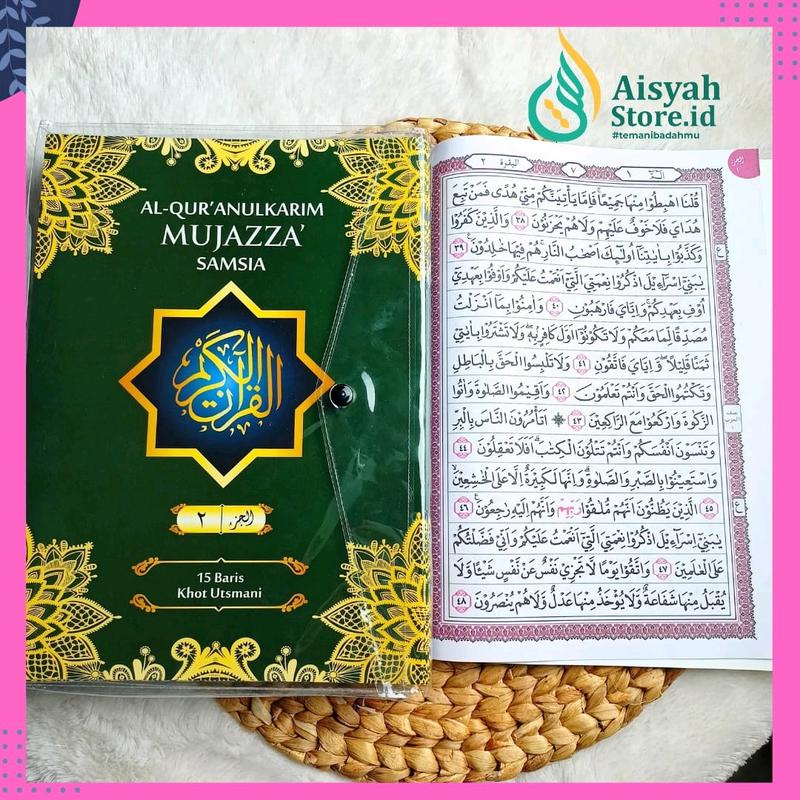 Aisyah
Store.id
#temanibadahmu
AL-QUR'ANULKARIM
MUJAZZA'
SAMSIA
القرآن الكريم
الجزء ٢
15 Baris
Khot Utsmani
١ ٧ البقرة ٢
قُلْنَا اهْبِطُوْا مِنْهَا جَمِيْعًا ۚ فَاِمَّا يَأْتِيَنَّكُمْ مِّنِّيْ هُدًى فَمَنْ تَبِعَ
هُدَايَ فَلَا خَوْفٌ عَلَيْهِمْ وَلَا هُمْ يَحْزَنُوْنَ ٣٨ وَالَّذِيْنَ كَفَرُوْا
وَكَذَّبُوْا بِاٰيٰتِنَآ اُولٰۤىِٕكَ اَصْحٰبُ النَّارِ ۚ هُمْ فِيْهَا خٰلِدُوْنَ ٣٩
يٰبَنِيْٓ اِسْرَآءِيْلَ اذْكُرُوْا نِعْمَتِيَ الَّتِيْٓ اَنْعَمْتُ عَلَيْكُمْ وَاَوْفُوْا بِعَهْدِيْٓ
اُوْفِ بِعَهْدِكُمْ ۚ وَاِيَّايَ فَارْهَبُوْنِ ٤٠ وَاٰمِنُوْا بِمَآ اَنْزَلْتُ
مُصَدِّقًا لِّمَا مَعَكُمْ وَلَا تَكُوْنُوْٓا اَوَّلَ كَافِرٍۢ بِهٖ ۖ وَلَا تَشْتَرُوْا بِاٰيٰتِيْ
ثَمَنًا قَلِيْلًا ۖ وَّاِيَّايَ فَاتَّقُوْنِ ٤١ وَلَا تَلْبِسُوا الْحَقَّ بِالْبَاطِلِ
وَتَكْتُمُوا الْحَقَّ وَاَنْتُمْ تَعْلَمُوْنَ ٤٢ وَاَقِيْمُوا الصَّلٰوةَ وَاٰتُوا
الزَّكٰوةَ وَارْكَعُوْا مَعَ الرَّاكِعِيْنَ ٤٣ ۞ اَتَأْمُرُوْنَ النَّاسَ بِالْبِرِّ
وَتَنْسَوْنَ اَنْفُسَكُمْ وَاَنْتُمْ تَتْلُوْنَ الْكِتٰبَ ۗ اَفَلَا تَعْقِلُوْنَ ٤٤
وَاسْتَعِيْنُوْا بِالصَّبْرِ وَالصَّلٰوةِ ۗ وَاِنَّهَا لَكَبِيْرَةٌ اِلَّا عَلَى الْخٰشِعِيْنَ
٤٥ الَّذِيْنَ يَظُنُّوْنَ اَنَّهُمْ مُّلٰقُوْا رَبِّهِمْ وَاَنَّهُمْ اِلَيْهِ رٰجِعُوْنَ ٤٦
يٰبَنِيْٓ اِسْرَآءِيْلَ اذْكُرُوْا نِعْمَتِيَ الَّتِيْٓ اَنْعَمْتُ عَلَيْكُمْ وَاَنِّيْ فَضَّلْتُكُمْ
عَلَى الْعٰلَمِيْنَ ٤٧ وَاتَّقُوْا يَوْمًا لَّا تَجْزِيْ نَفْسٌ عَنْ نَّفْسٍ شَيْـًٔا وَّلَا
يُقْبَلُ مِنْهَا شَفَاعَةٌ وَّلَا يُؤْخَذُ مِنْهَا عَدْلٌ وَّلَا هُمْ يُنْصَرُوْنَ ٤٨